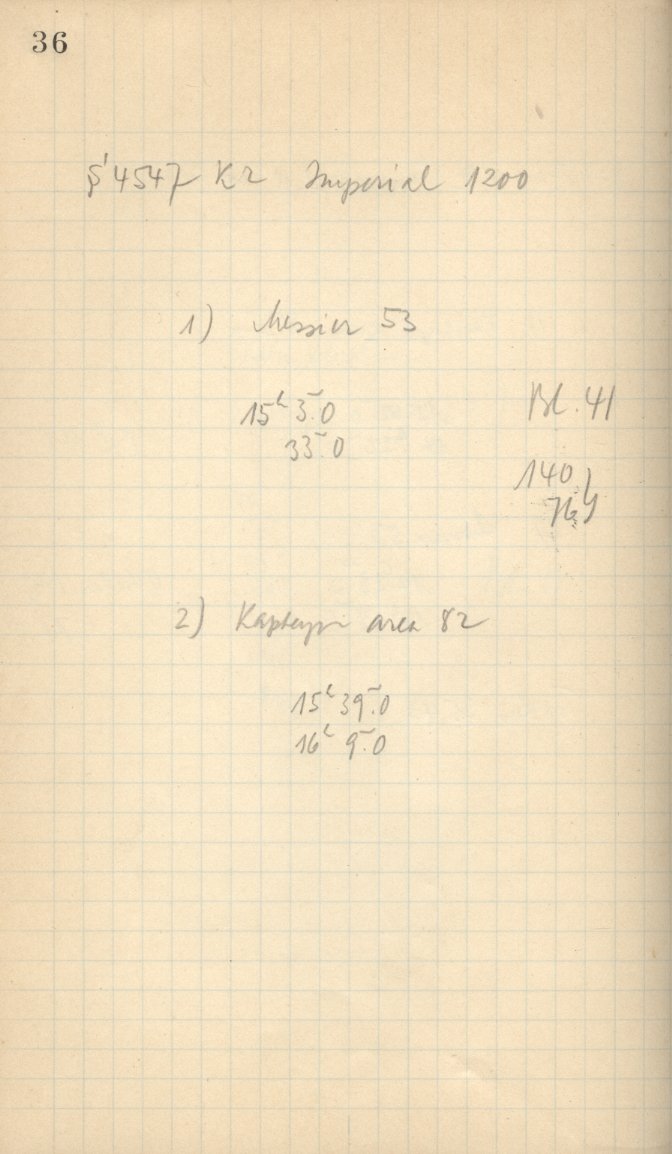 36
S 4547 K2 Imperial 1200
1) Messier 53
15ʰ 3ᵐ.0
33ᵐ.0
Bl. 41
140
76
2) Kapteyn area 82
15ʰ 39ᵐ.0
16ʰ 9ᵐ.0